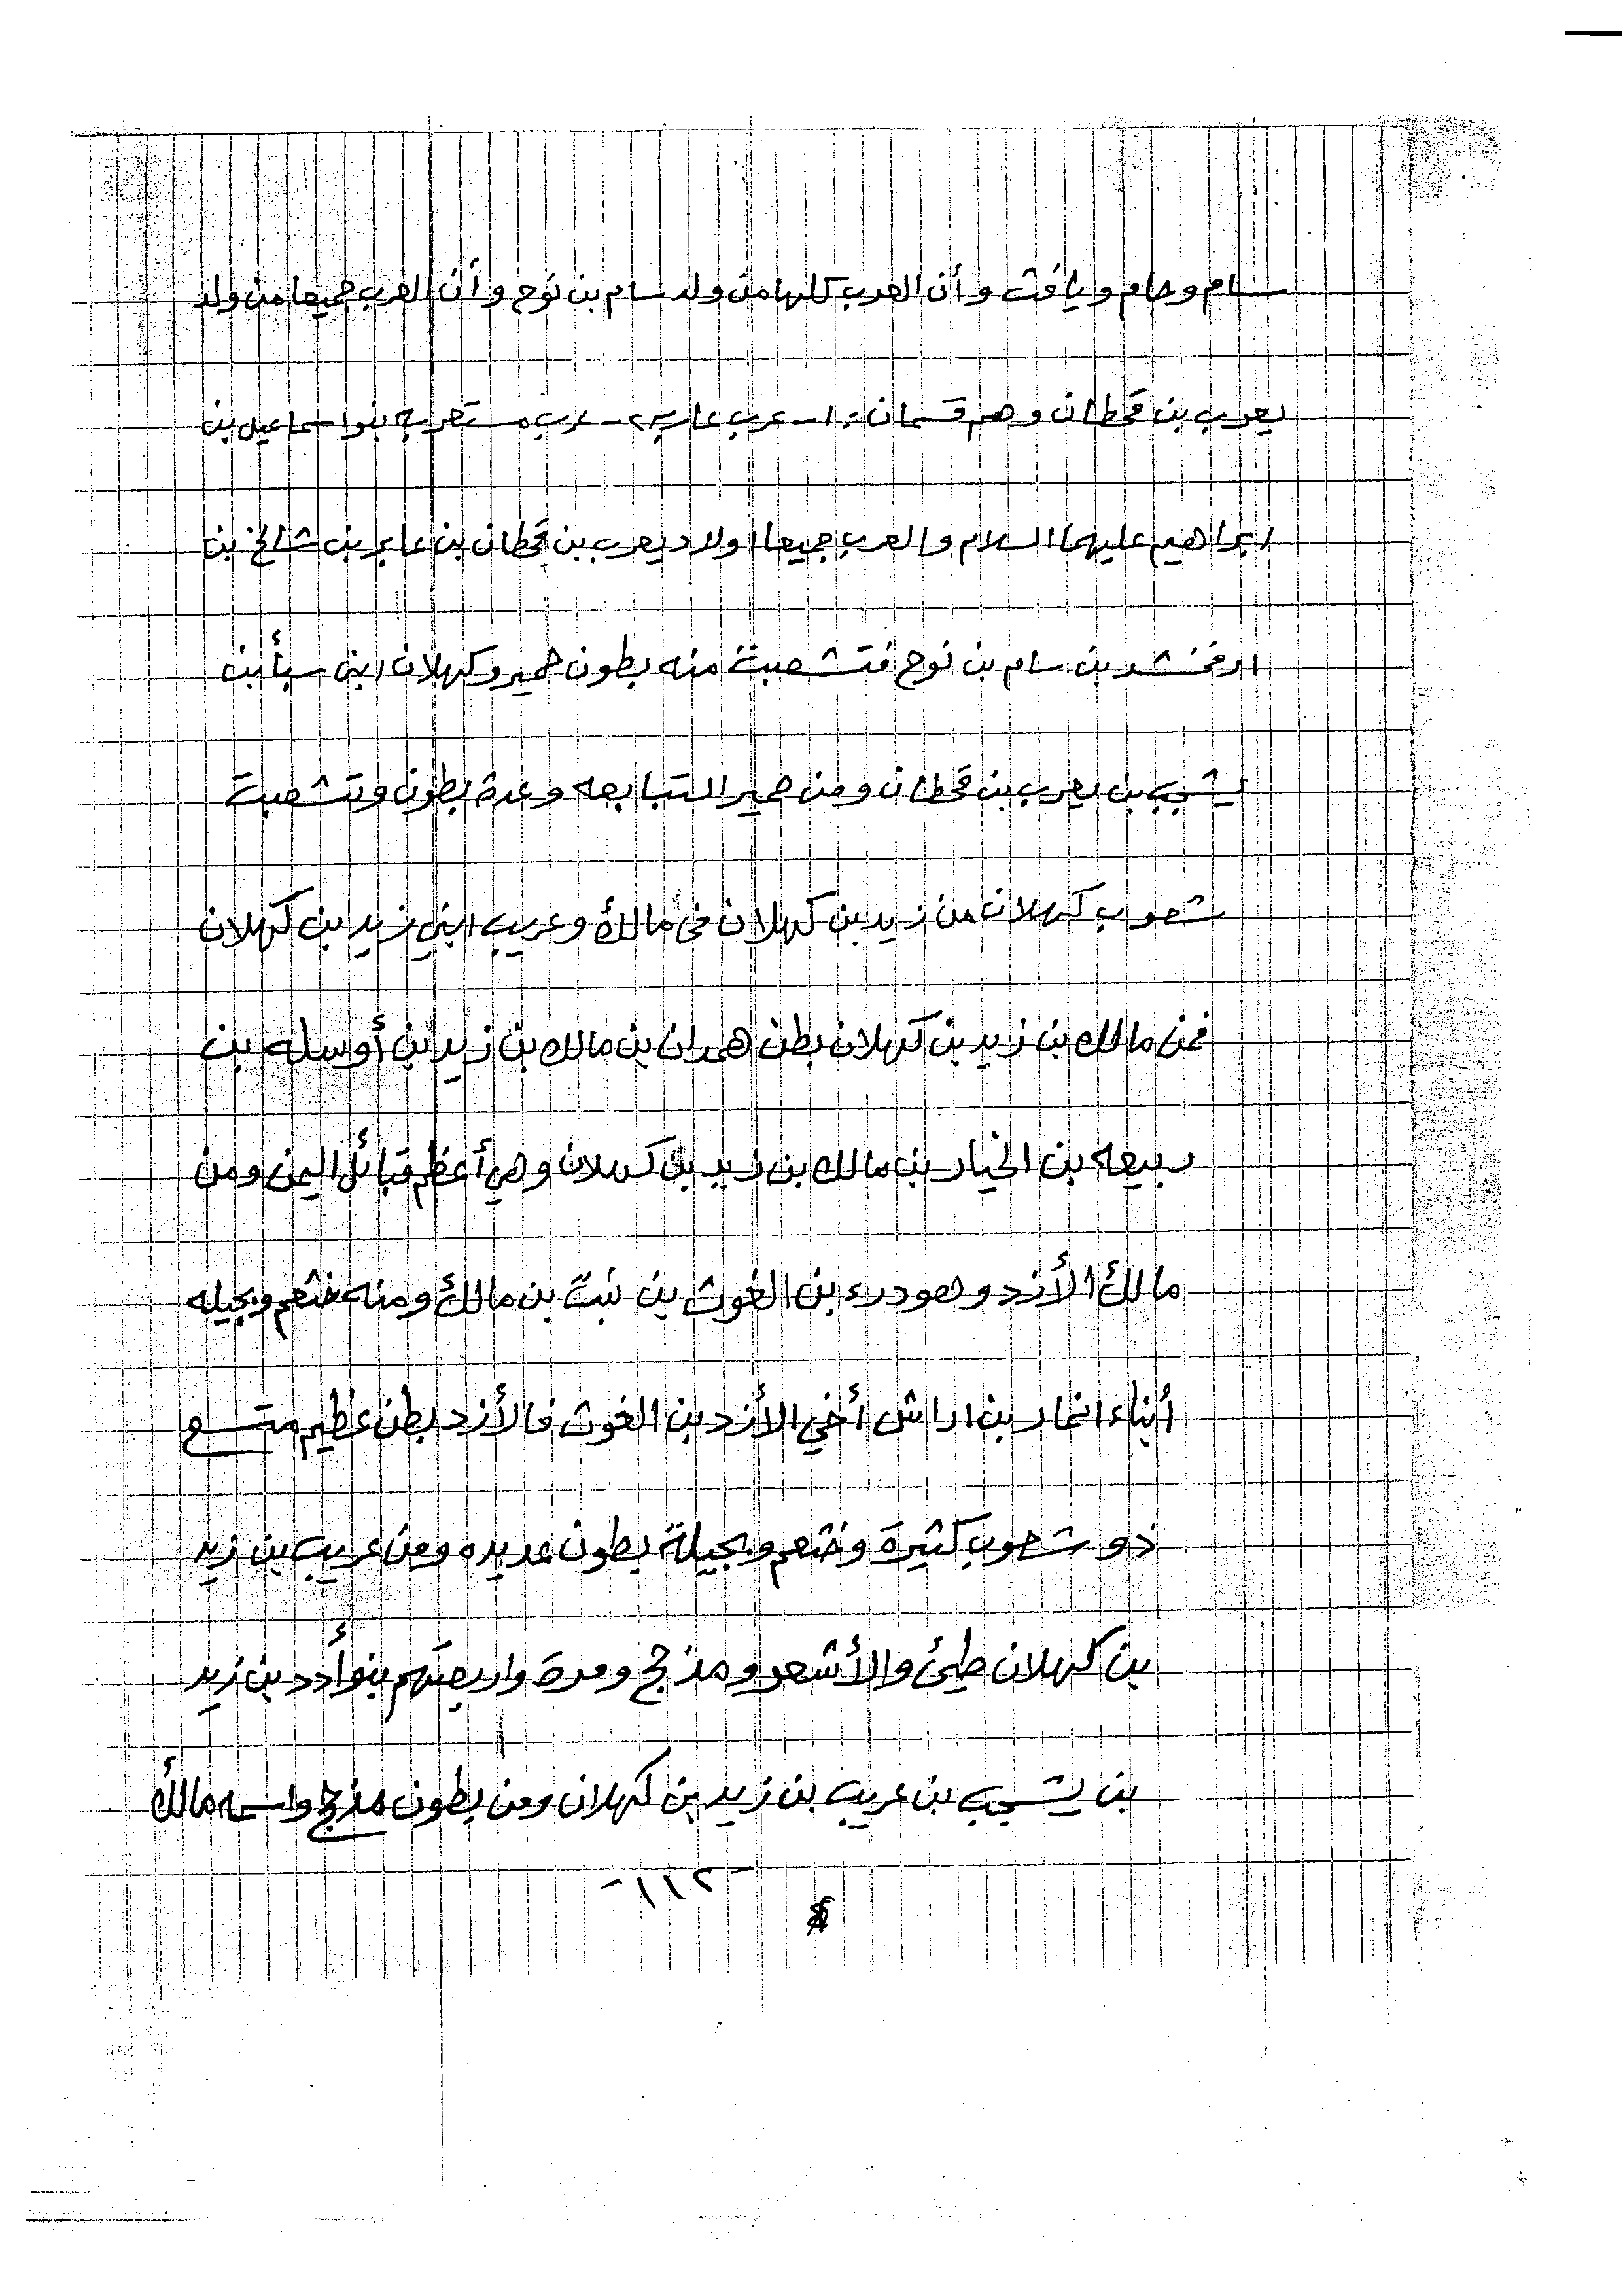 سام وحام ويافث وأن العرب كلها من ولد سام بن نوح وأن العرب جميعا من ولد
يعرب بن قحطان وهم قسمان : ١ـ عرب عاربه ٢ـ عرب مستعربه بنوا اسماعيل بن
ابراهيم عليهما السلام والعرب جميعا اولاد يعرب بن قحطان بن عابر بن شالخ بن
ارفخشد بن سام بن نوح فتشعبت منه بطون حمير وكهلان ابني سبأ بن
يشجب بن يعرب بن قحطان ومن حمير التبابعه وعدة بطون وتشعبت
شعوب كهلان من زيد بن كهلان في مالك وعريب ابني زيد بن كهلان
فمن مالك بن زيد بن كهلان بطن همدان بن مالك بن زيد بن أوسله بن
ربيعه بن الخيار بن مالك بن زيد بن كهلان وهي أعظم قبائل اليمن ومن
مالك الأزد وهو درء بن الغوث بن نبت بن مالك ومنه خثعم وبجيله
أبناء انمار بن اراش أخي الأزد بن الغوث فالأزد بطن عظيم متسع
ذو شعوب كثيرة وخثعم وبجيلة بطون عديده ومن عريب بن زيد
بن كهلان طيئ والأشعر ومذحج ومرة واربعتهم بنو أدد بن زيد
بن يشجب بن عريب بن زيد بن كهلان ومن بطون مذحج واسمه مالك
-١١٢-